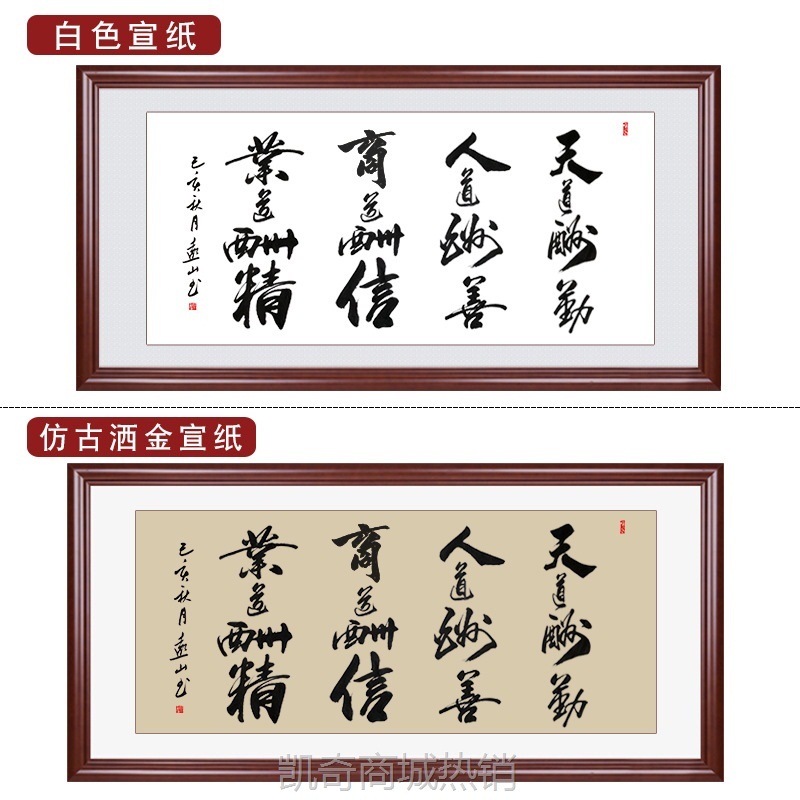 白色宣纸
天道酬勤
人道酬善
商道酬信
業道酬精
己亥秋月
仿古洒金宣纸
天道酬勤
人道酬善
商道酬信
業道酬精
己亥秋月
凯奇商城热销